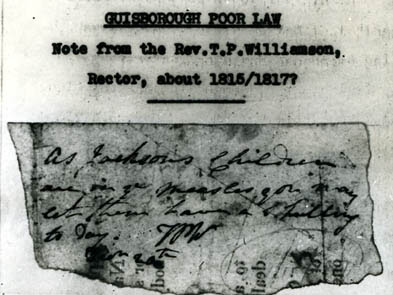 GUISBOROUGH POOR LAW
Note from the Rev.T.P.Williamson,
Rector, about 1815/1817?
As Jacksons Children
are in ye measles you may
let them have a Shilling
to day. TPW
20th